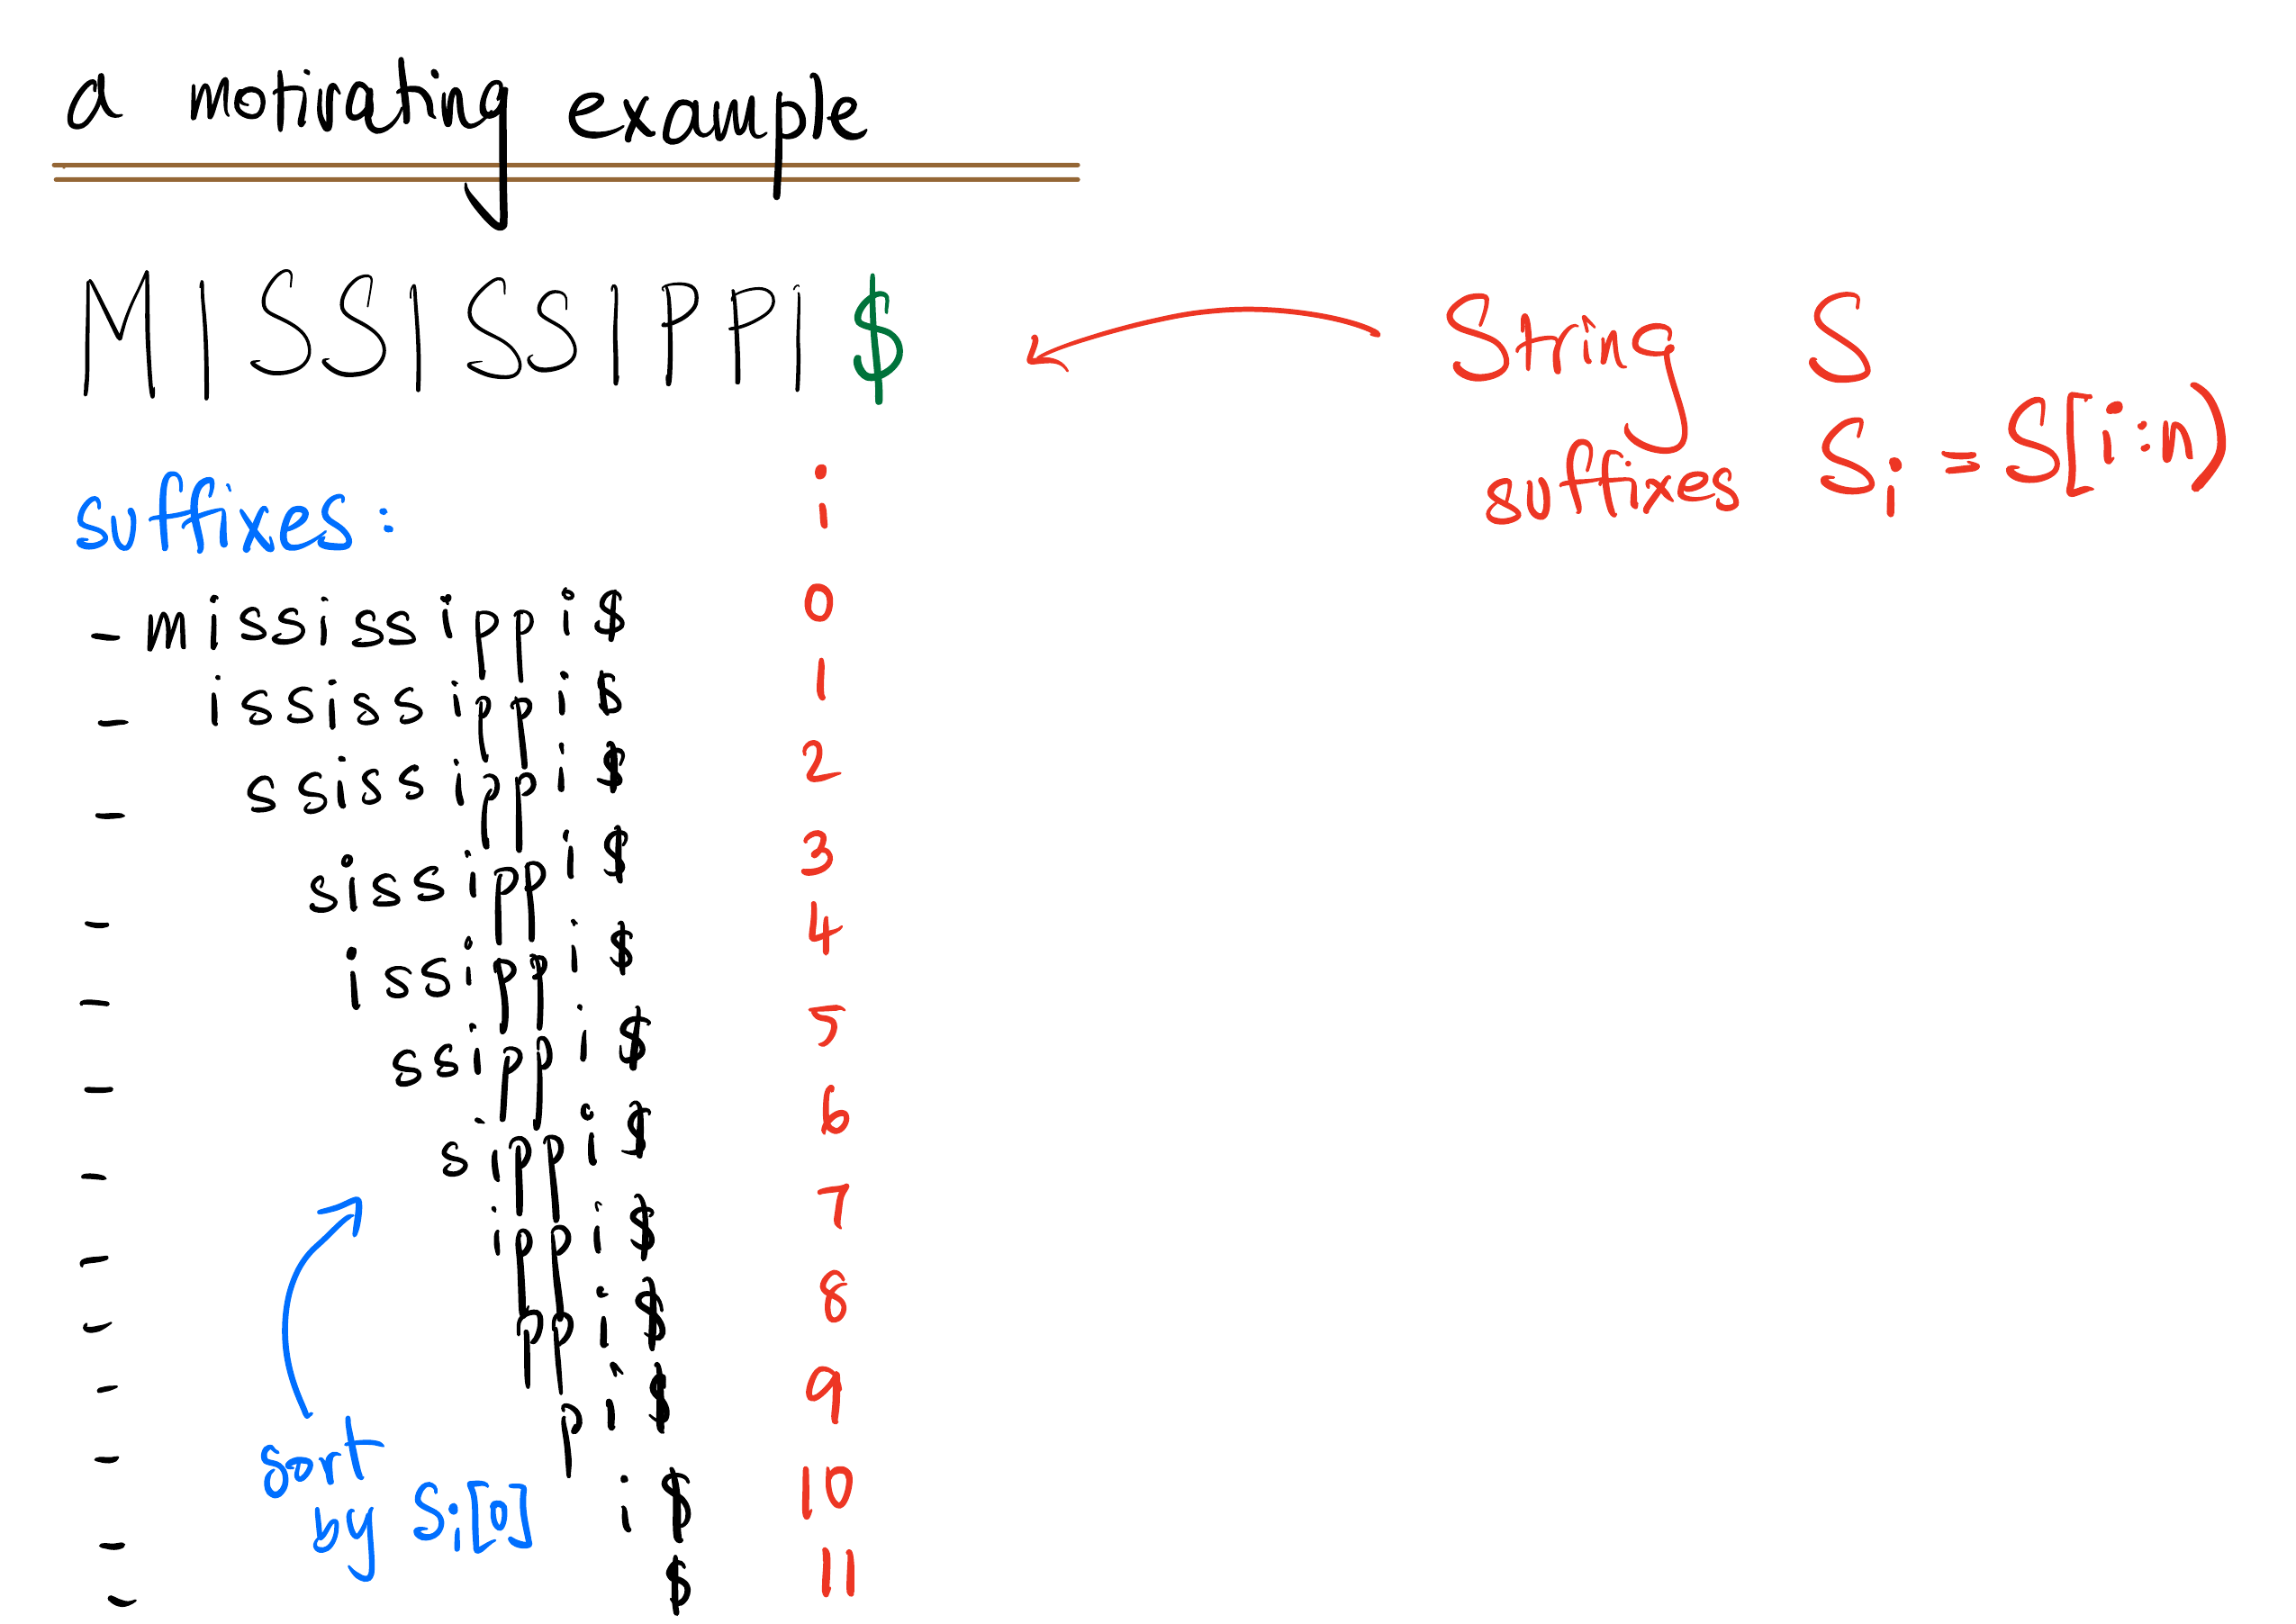 a motivating example
MISSISSIPPI$
String S
suffixes Si = S[i:n)
suffixes: i
- mississippi$ 0
- ississippi$ 1
- ssissippi$ 2
- sissippi$ 3
- issippi$ 4
- ssippi$ 5
- sippi$ 6
- ippi$ 7
- ppi$ 8
- pi$ 9
- i$ 10
- $ 11
sort
by Si[0]